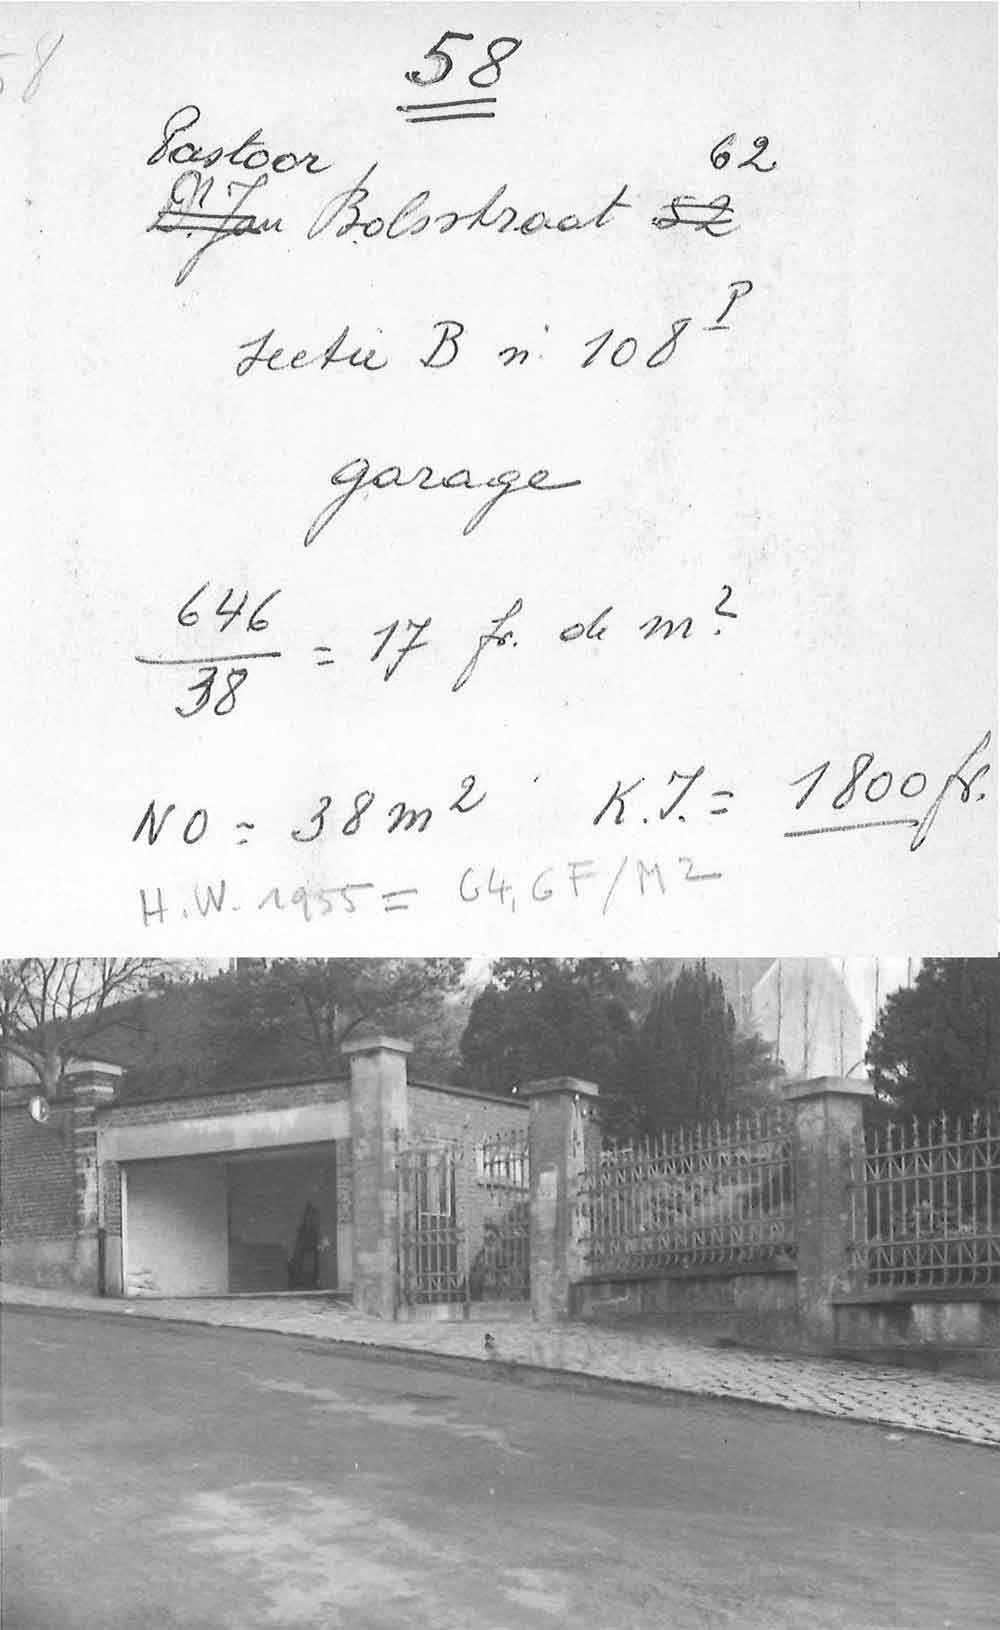 58
58
Pastoor 62
D. Jan Bolsstraat 52
sectie B n° 108 P
garage
646
38 = 17 fr. de m²
NO = 38 m² K.I. = 1800 fr.
H.W. 1955 = 64,6 F/M2